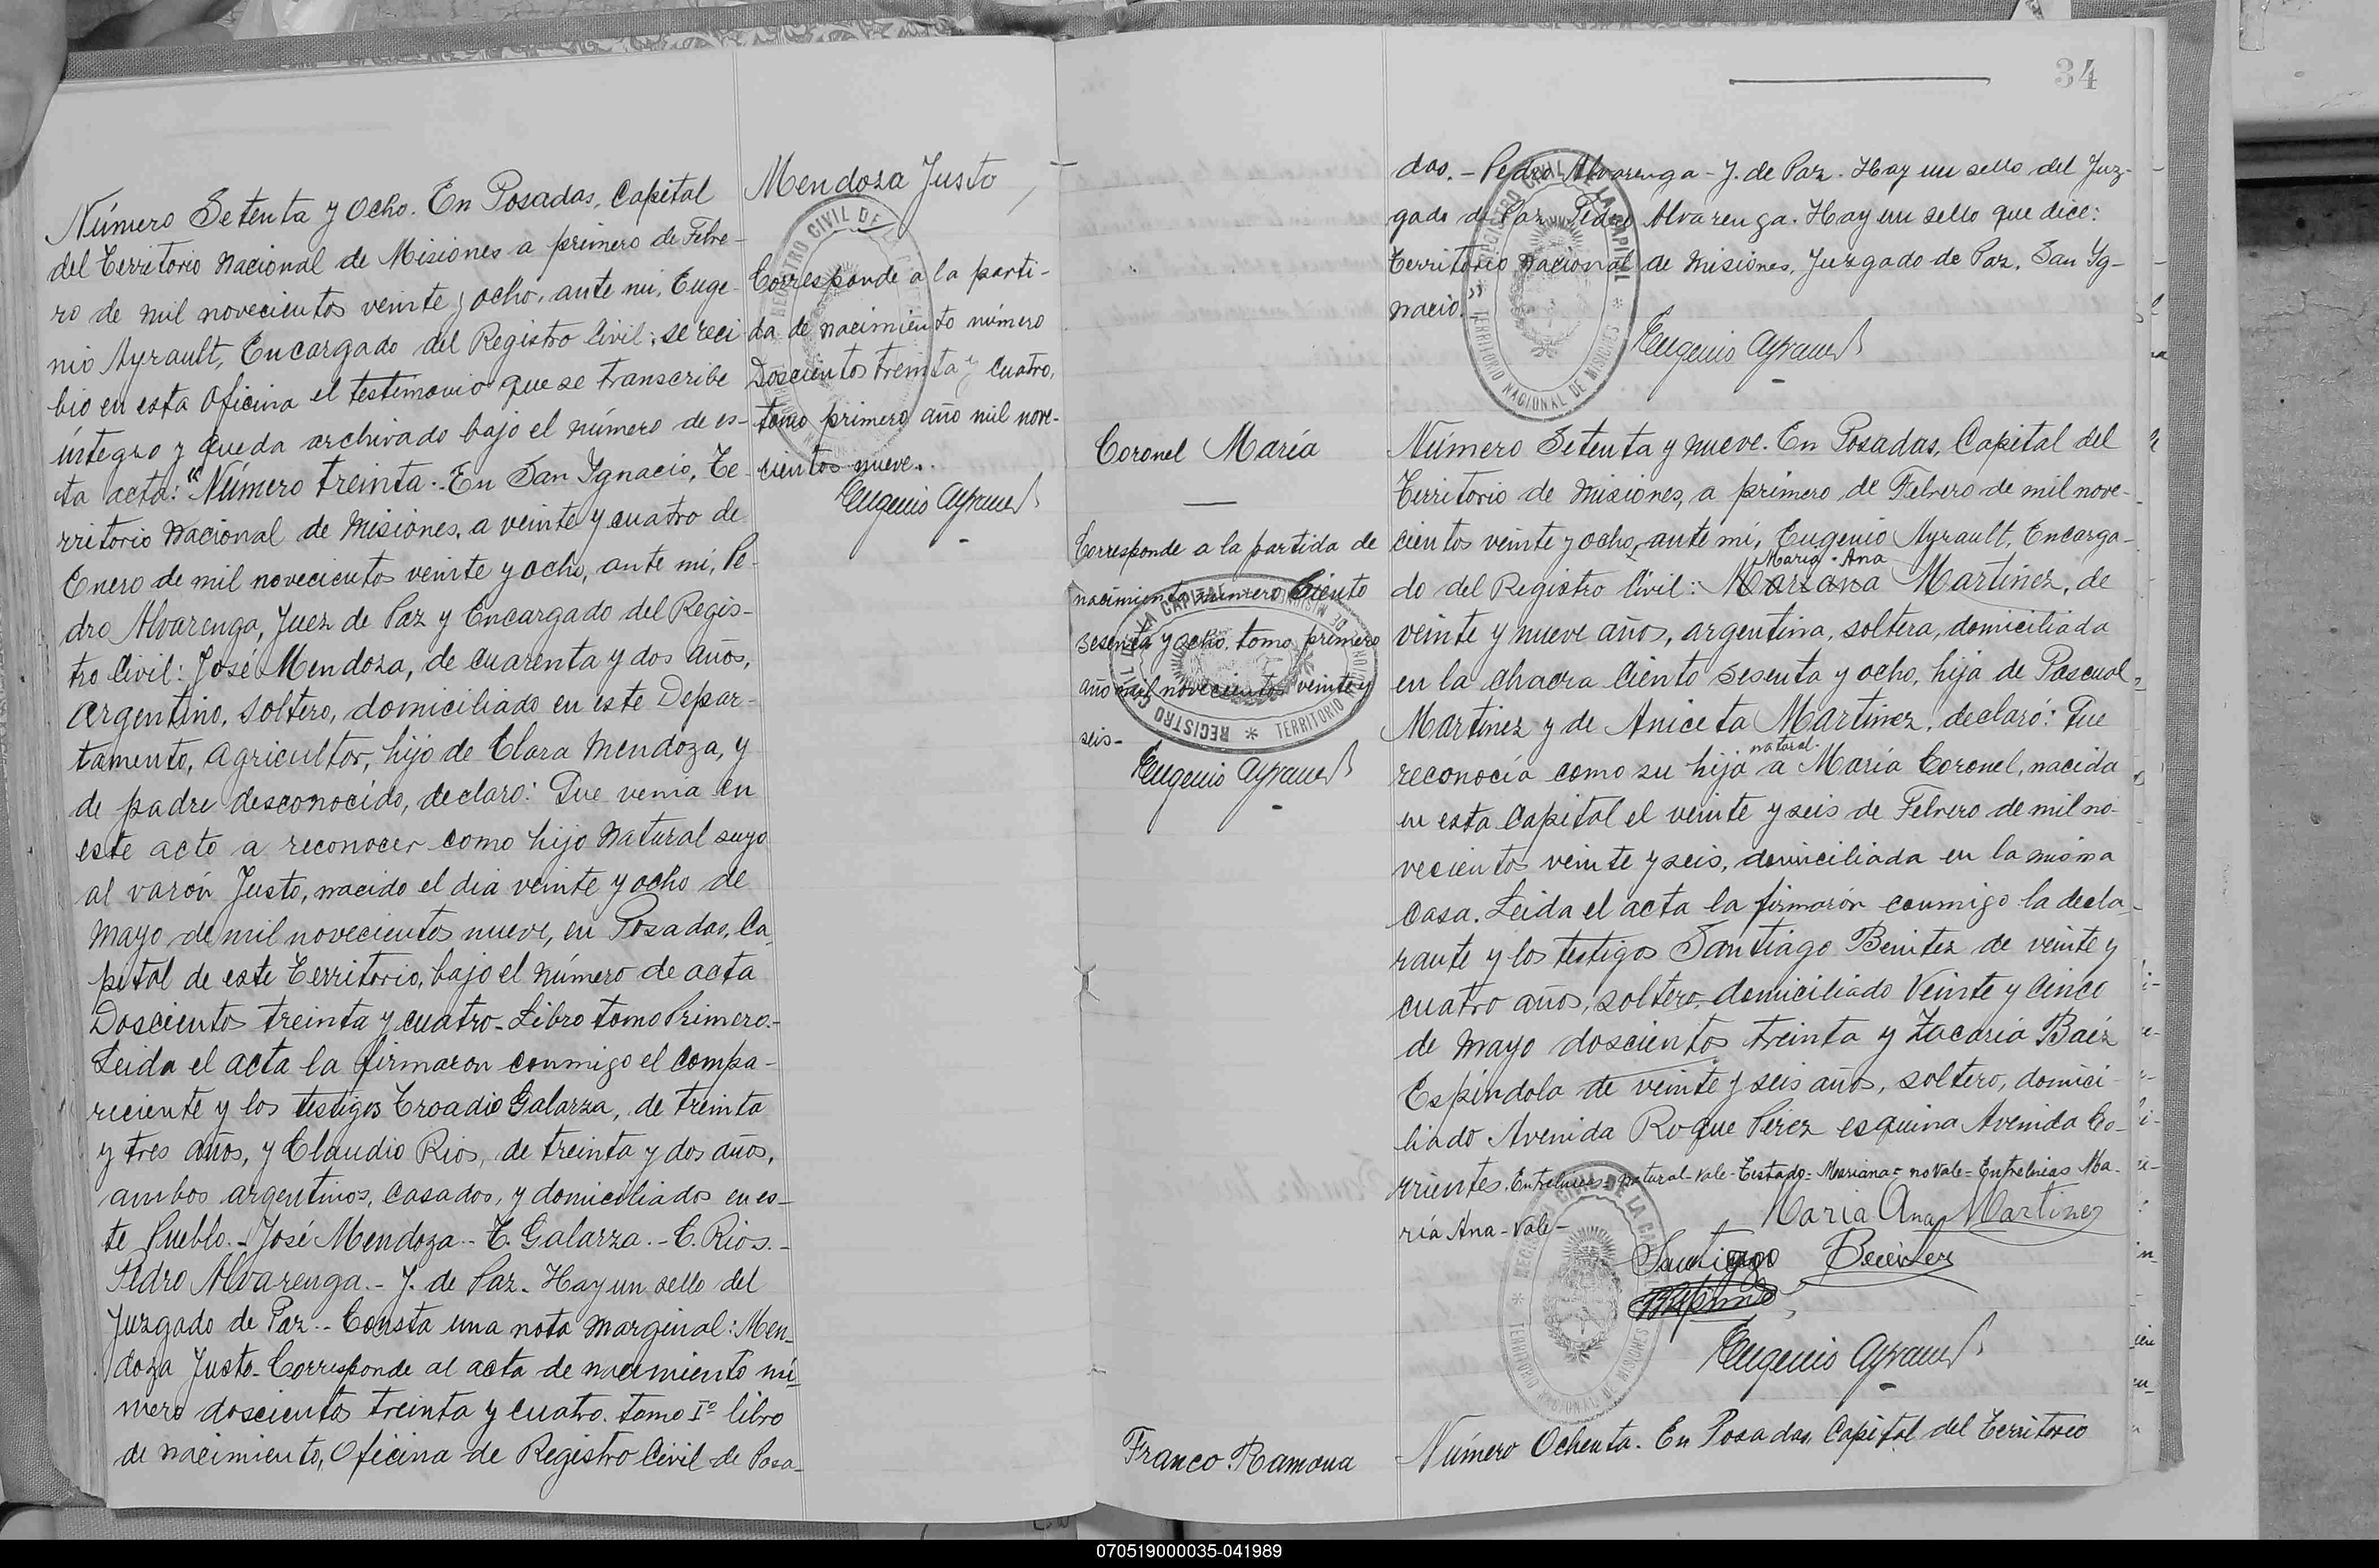 Número Setenta y Ocho. En Posadas, Capital
del Territorio Nacional de Misiones a primero de Febre-
ro de mil novecientos veinte y ocho, ante mi, Euge-
nio Ayrault, Encargado del Registro Civil: se reci
bio en esta Oficina el testimonio que se transcribe
integro y queda archivado bajo el número de es-
ta acta: "Número treinta.- En San Ygnacio, Te-
rritorio Nacional de Misiones, a veinte y cuatro de
Enero de mil novecientos veinte y ocho, ante mi, Pe-
dro Alvarenga, Juez de Paz y Encargado del Regis-
tro Civil: José Mendoza, de cuarenta y dos años,
Argentino, soltero, domiciliado en este Depar-
tamento, agricultor, hijo de Clara Mendoza, y
de padre desconocido, declaro: Que venia en
este acto a reconocer como hijo natural suyo
al varón Justo, nacido el dia veinte y ocho de
Mayo de mil novecientos nueve, en Posadas, Ca-
pital de este Territorio, bajo el número de acta
Doscientos treinta y cuatro- Libro tomo Primero.-
Leida el acta la firmaron conmigo el compa-
reciente y los testigos Troadio Galarza, de treinta
y tres años, y Claudio Rios, de treinta y dos años,
ambos argentinos, casados, y domiciliados en es-
te Pueblo.- José Mendoza.- T. Galarza.- C. Rios.-
Pedro Alvarenga.- J. de Paz. Hay un sello del
Juzgado de Paz.- Consta una nota marginal: Men-
doza Justo- Corresponde al acta de nacimiento nú-
mero doscientos treinta y cuatro. tomo Iº libro
de nacimiento, Oficina de Registro Civil de Posa-
Mendoza Justo
Corresponde a la parti-
da de nacimiento número
Doscientos treinta y cuatro,
tomo primero año mil nove-
cientos nueve..
Eugenio Ayrault
34
das.- Pedro Alvarenga - J. de Paz. Hay un sello del Juz-
gado de Paz Pedro Alvarenga. Hay un sello que dice:
Territorio Nacional de Misiones, Juzgado de Paz, San Yg-
nacio."
Eugenio Ayrault
Coronel María
Corresponde a la partida de
nacimiento número Ciento
sesenta y ocho, tomo primero
año mil novecientos veinte y
seis-
Eugenio Ayrault
Número Setenta y nueve. En Posadas, Capital del
Territorio de Misiones, a primero de Febrero de mil nove-
cientos veinte y ocho, ante mí, Eugenio Ayrault, Encarga-
María Ana
do del Registro Civil: Mariana Martinez, de
veinte y nueve años, argentina, soltera, domiciliada
en la chacra Ciento sesenta y ocho, hija de Pascual
Martinez y de Aniceta Martinez, declaró: Que
natural
reconocía como su hija a María Coronel, nacida
en esta Capital el veinte y seis de Febrero de mil no-
vecientos veinte y seis, domiciliada en la misma
casa. Leida el acta la firmarón conmigo la decla-
rante y los testigos Santiago Benitez de veinte y
cuatro años, soltero, domiciliado Veinte y Cinco
de Mayo doscientos treinta y Zacaria Baéz
Espíndola de veinte y seis años, soltero, domici-
liado Avenida Roque Pérez esquina Avenida Co-
rrientes. Entrelineas= natural-Vale-Testado= Mariana= no Vale= Entrelineas Ma-
ría Ana-Vale-
Maria Ana Martinez
Santiago Benitez
Eugenio Ayrault
Franco Ramona
Número Ochenta. En Posadas, Capital del Territorio
REGISTRO CIVIL DE LA CAPITAL * TERRITORIO NACIONAL DE MISIONES *
070519000035-041989